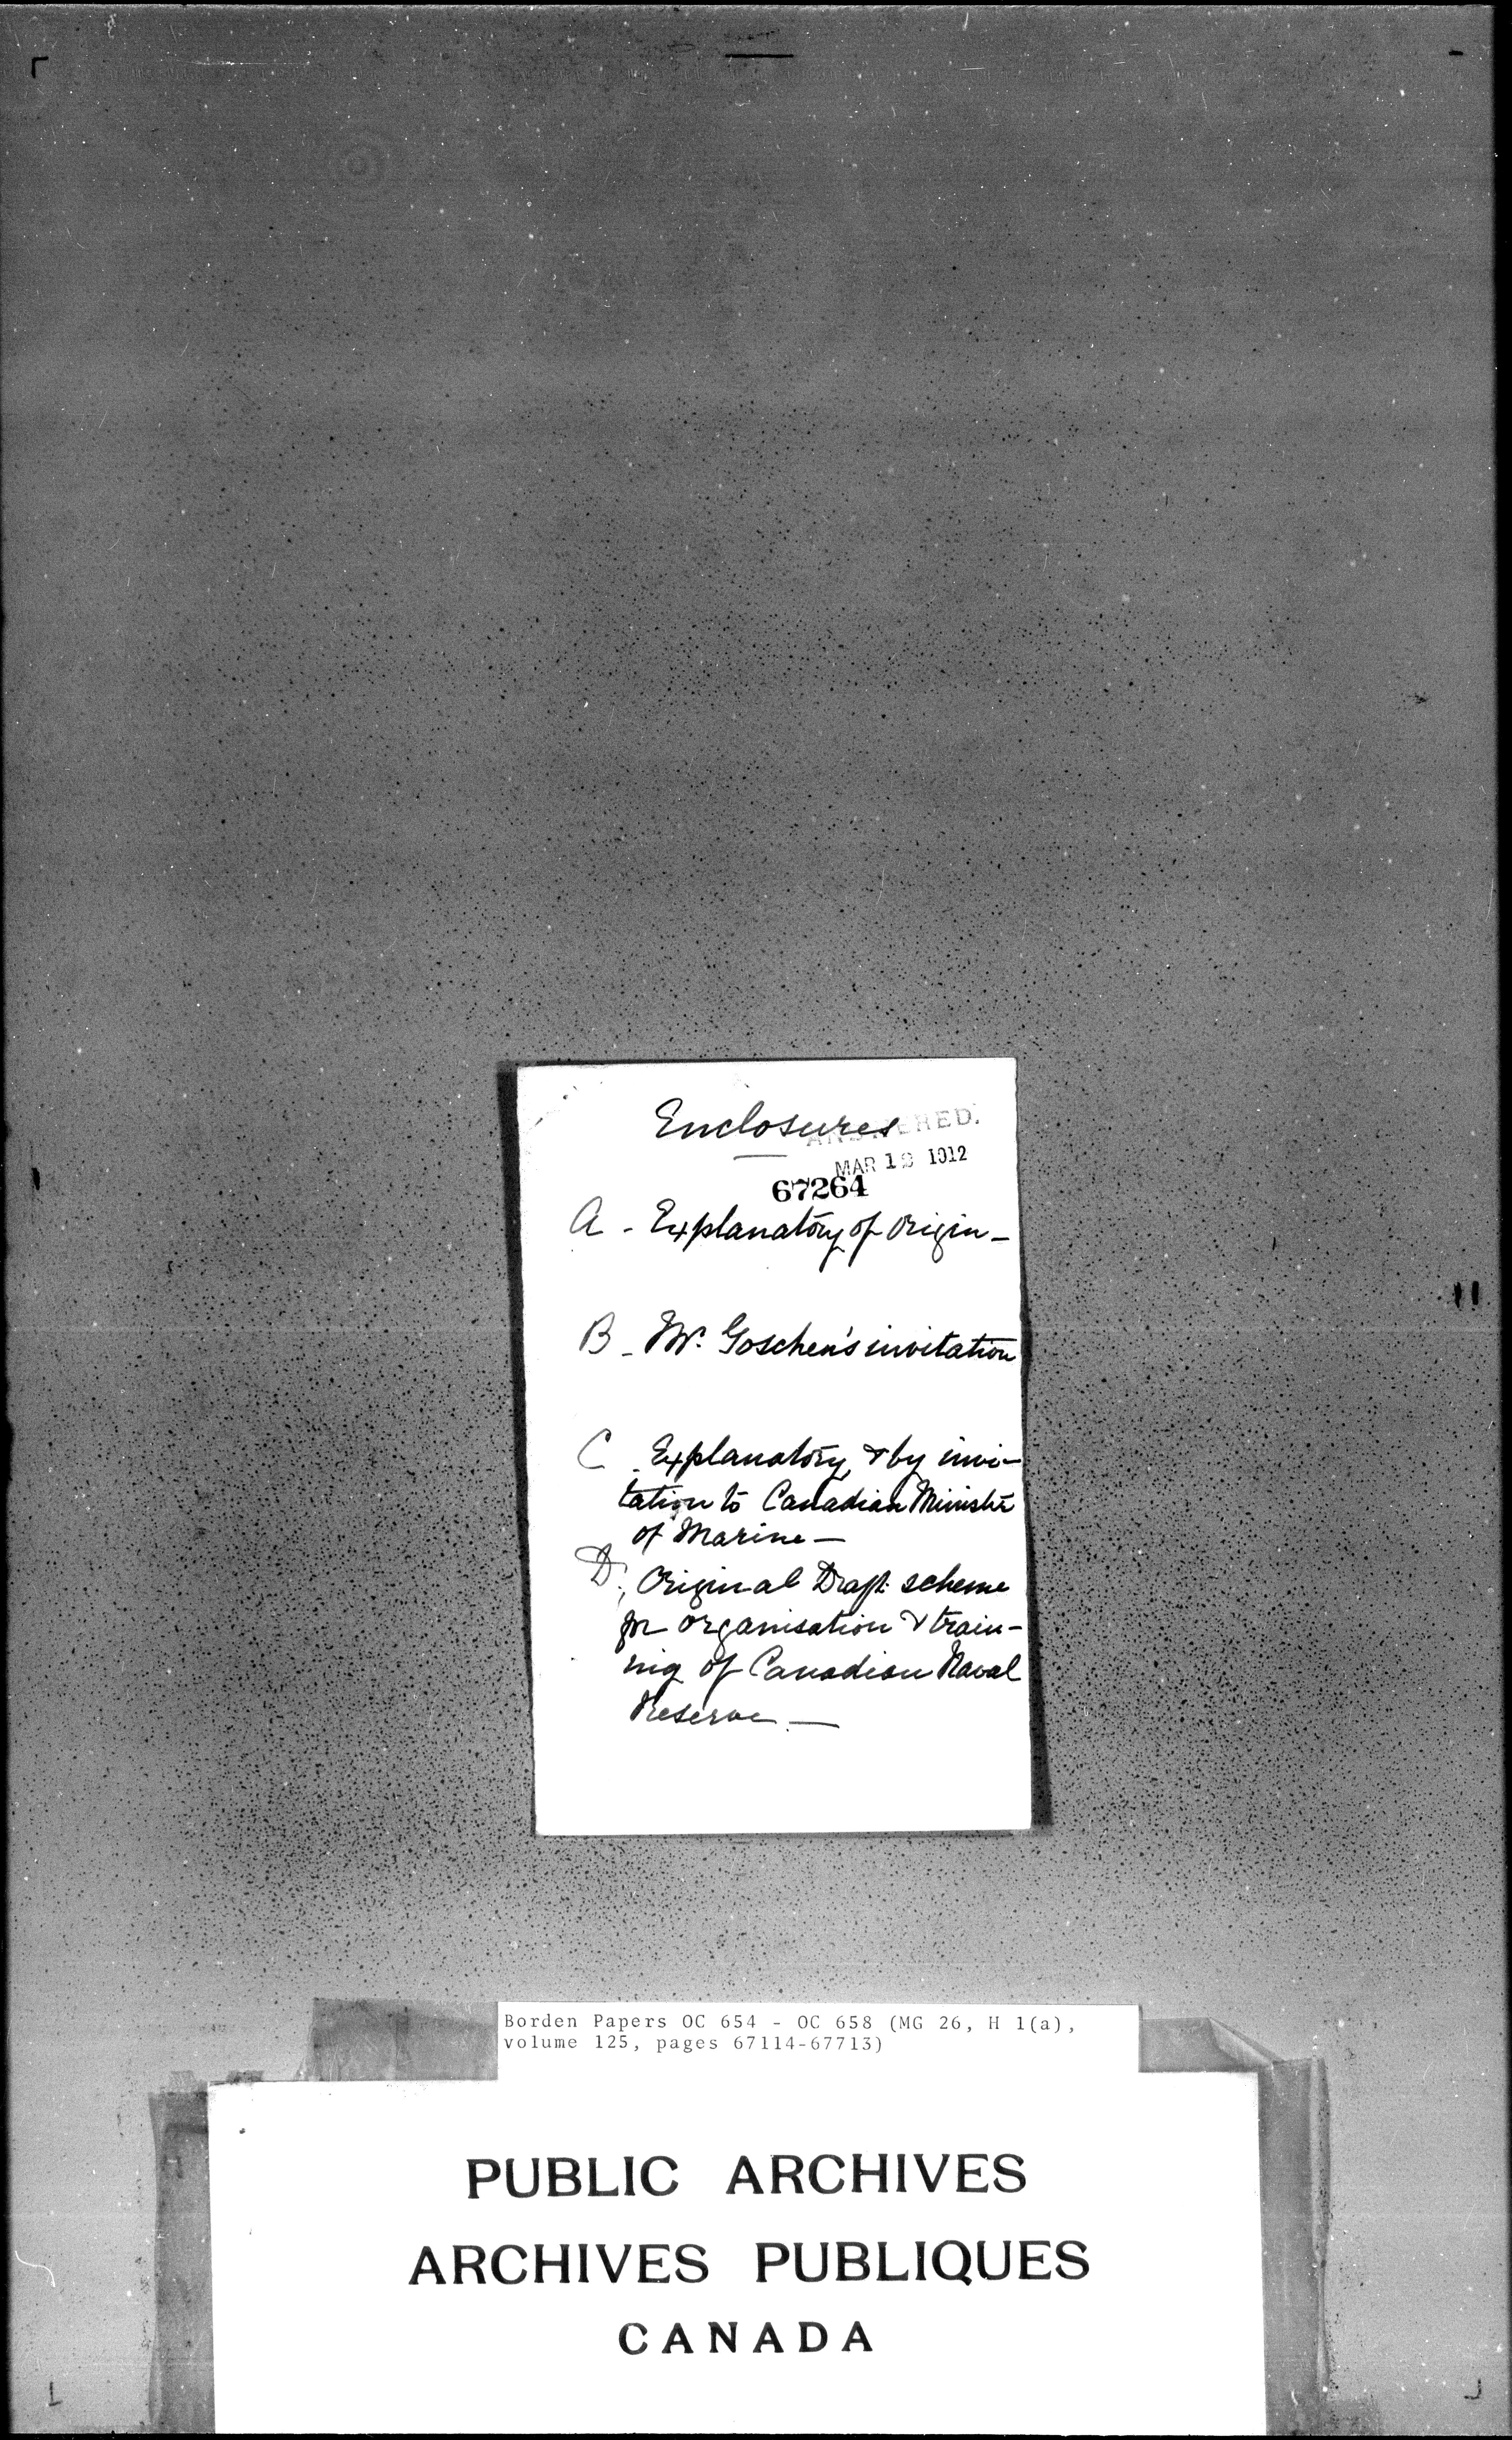 Enclosures
ANSWERED.
MAR 1 1912
67264
A - Explanatory of origin -
B - Mr. Goschen's invitation
C - Explanatory, & by invi-
tation to Canadian Ministr
of Marine -
D, Original Draft scheme
for organisation & train-
ing of Canadian Naval
Reserve. -
Borden Papers OC 654 - OC 658 (MG 26, H 1(a),
volume 125, pages 67114-67713)
PUBLIC ARCHIVES
ARCHIVES PUBLIQUES
CANADA